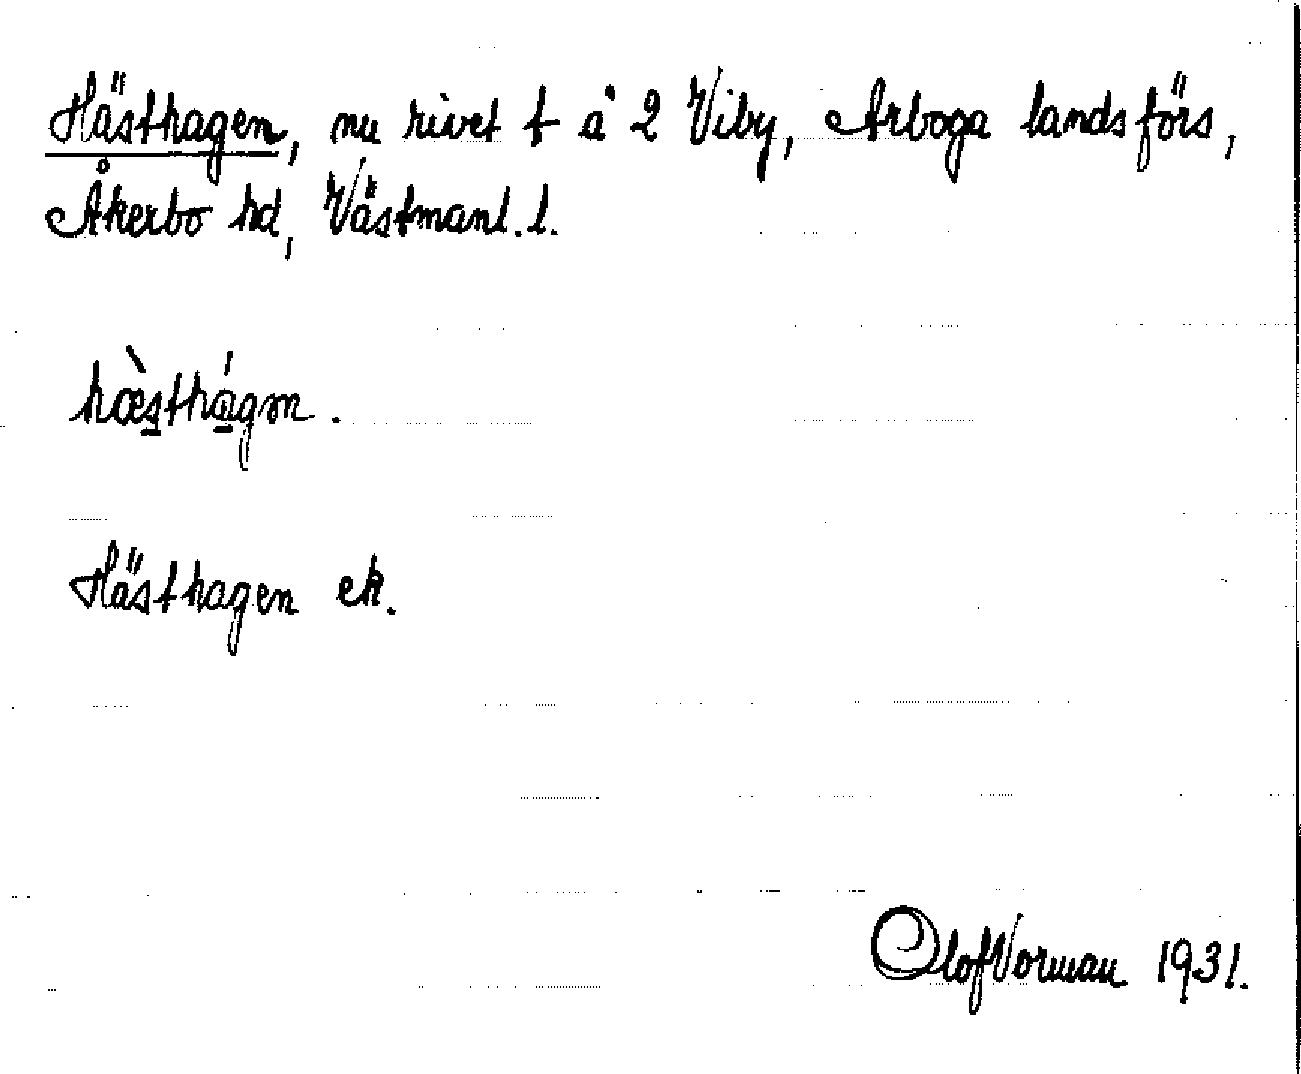 Hästhagen, nu rivet t å 2 Viby, Arboga landsförs,
Åkerbo hd, Västmanl. l.
hæ̀sthágən.
Hästhagen ek.
Olof Vorman 1931.